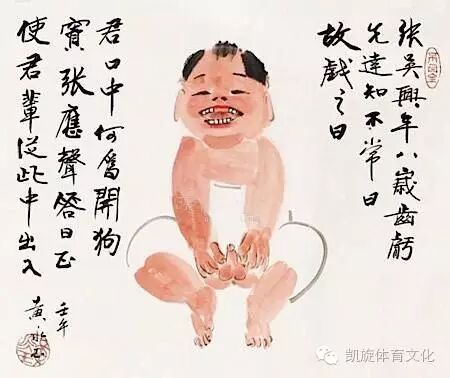 张吴興年八歲齒虧
先達知不常日
故戲之曰
君口中何為開狗
竇張應聲答曰正
使君輩從此中出入
壬午
黄永玉
凯旋体育文化